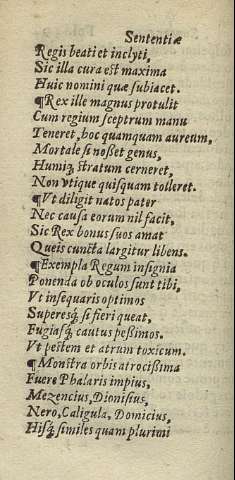 Sententiæ
Regis beati et inclyti,
Sic illa cura est maxima
Huic nomini quæ subiacet.
¶Rex ille magnus protulit
Cum regium sceptrum manu
Teneret, hoc quamquam aureum,
Mortale si nosset genus,
Humiq́; stratum cerneret,
Non vtique quisquam tolleret.
¶Vt diligit natos pater
Nec causa eorum nil facit,
Sic Rex bonus suos amat
Queis cuncta largitur libens.
¶Exempla Regum insignia
Ponenda ob oculos sunt tibi,
Vt insequaris optimos
Superesq́; si fieri queat,
Fugiasq́; cautus pessimos.
Vt pestem et atrum toxicum.
¶Monstra orbis atrocissima
Fuere Phalaris impius,
Mezencius, Dionisius,
Nero, Caligula, Domicius,
Hisq́; similes quam plurimi